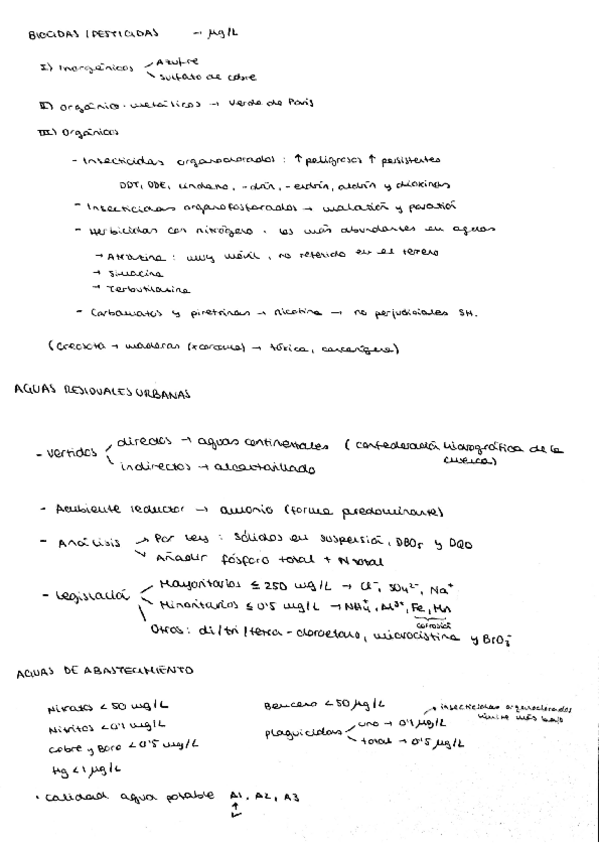 BIOCIDAS / PESTICIDAS → µg/L
I) Inorgánicos Azufre
Sulfato de cobre
II) Orgánico-metálicos → Verde de París
III) Orgánicos
- Insecticidas organoclorados : ↑ peligrosos ↑ persistentes
DDT, DDE, lindano, -drín, -endrín, aldrín y dioxinas
- Insecticidas organofosforados → malatión y paratión
- Herbicidas con nitrógeno. los más abundantes en aguas
→ Atrazina : muy móvil, no retenido en el terreno
→ Simacina
→ Terbutilazina
- Carbamatos y piretrinas → nicotina → no perjudiciales SH.
(Creosota → maderas → tóxica, cancerígena)
AGUAS RESIDUALES URBANAS
- Vertidos directos → aguas continentales (confederación hidrográfica de la cuenca)
indirectos → alcantarillado
- Ambiente reductor → amonio (forma predominante)
- Análisis → Por ley : sólidos en suspensión, DBO₅ y DQO
Añadir fósforo total + N total
- Legislación Mayoritarios ≤ 250 mg/L → Cl⁻, SO₄²⁻, Na⁺
Minoritarios ≤ 0'5 mg/L → NH₄⁺, Al³⁺, Fe, Mn
corrosión
Otros : di/tri/tetra-cloroetano, microcistina y BrO₃⁻
AGUAS DE ABASTECIMIENTO
Nitratos < 50 mg/L
Nitritos < 0'1 mg/L
Cobre y Boro < 0'5 mg/L
Hg < 1 µg/L
Benceno < 50 µg/L
Plaguicidas uno → 0'1 µg/L → insecticidas organoclorados límite más bajo
total → 0'5 µg/L
· Calidad agua potable A1, A2, A3